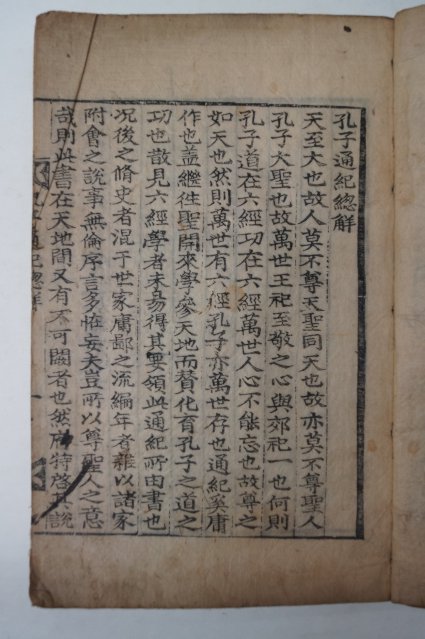 孔子通紀總解
天至大也故人莫不尊天聖同天也故亦莫不尊聖人
孔子大聖也故萬世王祀至敬之心與郊祀一也何則
孔子道在六經功在六經萬世人心不能忘也故尊之
如天也然則萬世有六經孔子亦萬世存也通紀奚庸
作也盖繼往聖開來學參天地而賛化育孔子之道之
功也散見六經學者未易得其要領此通紀所由書也
况後之脩史者混于世家庸鄙之流編年者雜以諸家
附會之說事無倫序言多恠妄夫豈所以尊聖人之意
哉則此書在天地間又有不可闕者也然所特啓其說
孔子通紀總解
一